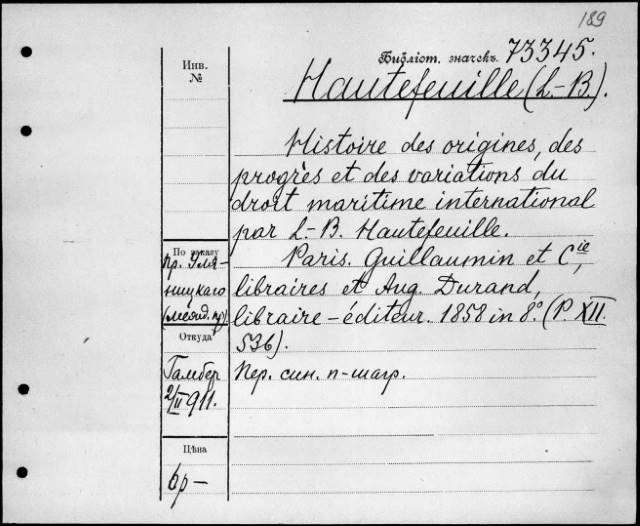 189
Библіот. значекъ 73345.
Инв.
№
Hautefeuille (L.-B.).
Histoire des origines, des
progrès et des variations du
droit maritime international
par L.-B. Hautefeuille.
По заказу
пр. Уля-
ницкаго
Paris. Guillaumin et Cie,
libraires et Aug. Durand,
libraire-éditeur. 1858 in 8º. (P. XII.
536).
Откуда
Гамбер
2/II 911.
Пер. син. п-шагр.
Цѣна
6р-